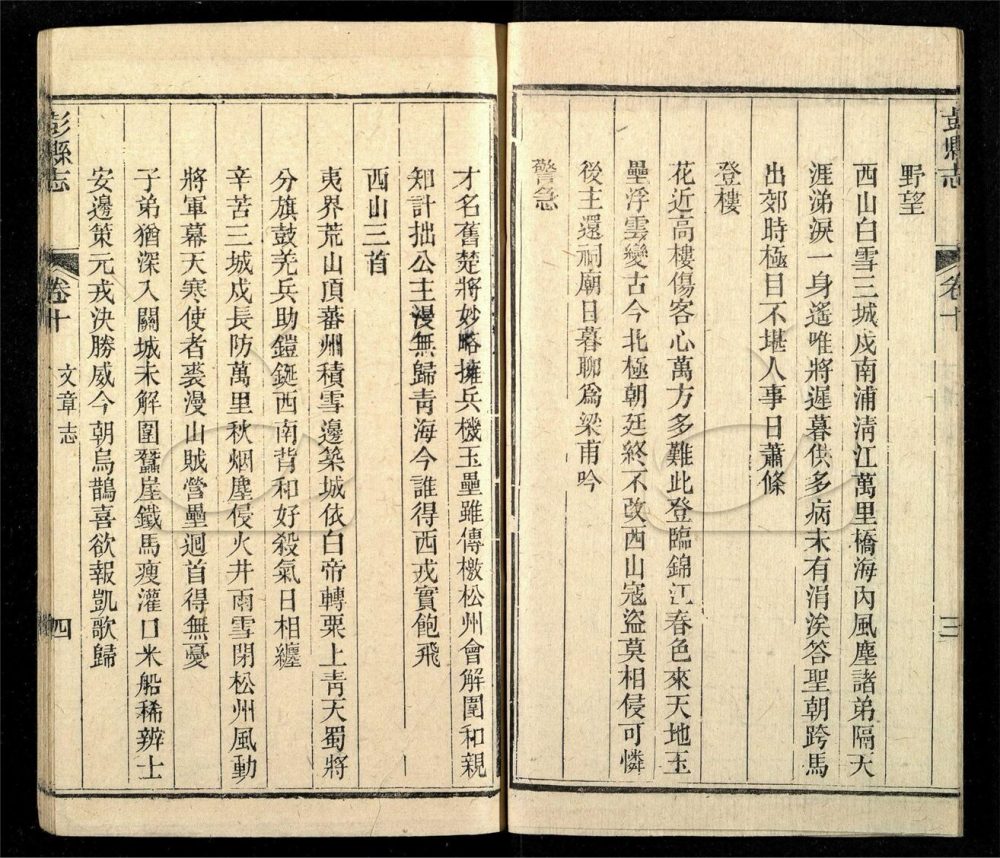 彭縣志 卷十 三
野望
西山白雪三城戍南浦清江萬里橋海內風塵諸弟隔天
涯涕淚一身遙唯將遲暮供多病未有涓涘答聖朝跨馬
出郊時極目不堪人事日蕭條
登樓
花近高樓傷客心萬方多難此登臨錦江春色來天地玉
壘浮雲變古今北極朝廷終不改西山寇盜莫相侵可憐
後主還祠廟日暮聊爲梁甫吟
警急
才名舊楚將妙略擁兵機玉壘雖傳檄松州會解圍和親
知計拙公主漫無歸青海今誰得西戎實飽飛
西山三首
夷界荒山頂蕃州積雪邊築城依白帝轉粟上青天蜀將
分旗鼓羌兵助鎧鋋西南背和好殺氣日相纏
辛苦三城戍長防萬里秋烟塵侵火井雨雪閉松州風動
將軍幕天寒使者裘漫山賊營壘迴首得無憂
子弟猶深入關城未解圍蠶崖鐵馬瘦灌口米船稀辨士
安邊策元戎決勝威今朝烏鵲喜欲報凱歌歸
彭縣志 卷十 文章志 四